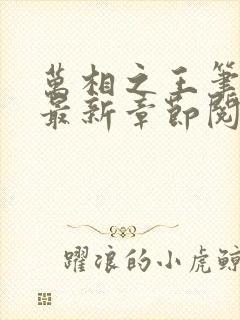 萬相之王筆
最新章節閱
躍浪的小虎鯨